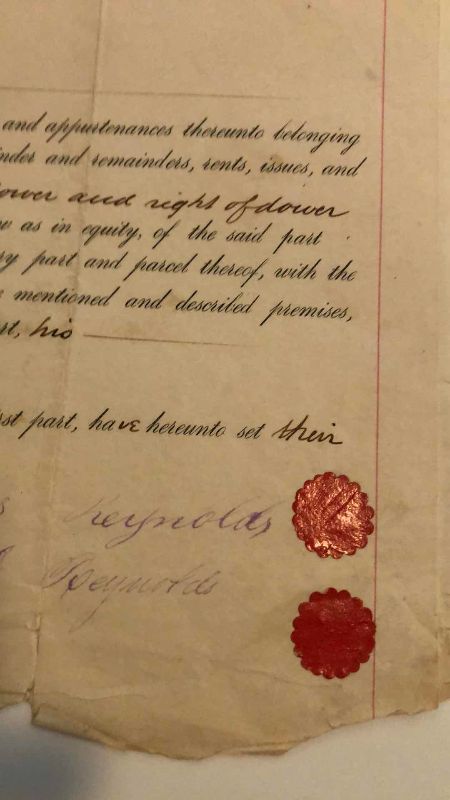 and appurtenances thereunto belonging
and remainders, rents, issues, and
and right of dower
as in equity, of the said part
part and parcel thereof, with the
mentioned and described premises,
his
part, have hereunto set their
Reynolds
Reynolds